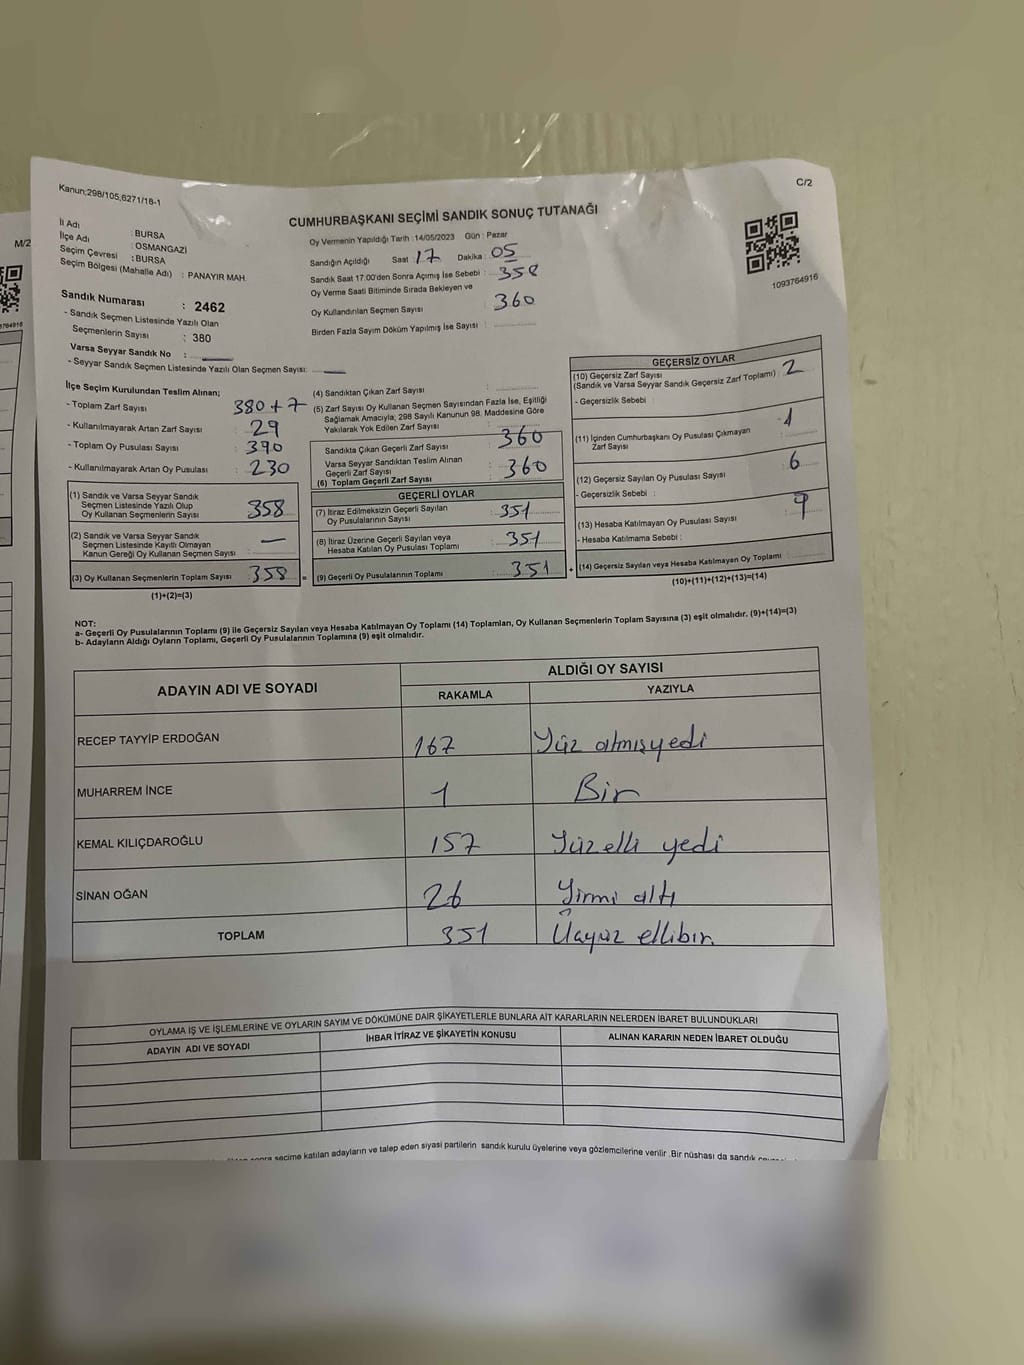 Kanun;298/105,6271/18-1
C/2
CUMHURBAŞKANI SEÇİMİ SANDIK SONUÇ TUTANAĞI
İl Adı : BURSA
İlçe Adı : OSMANGAZİ
Seçim Çevresi : BURSA
Seçim Bölgesi (Mahalle Adı) : PANAYIR MAH.
Sandık Numarası : 2462
- Sandık Seçmen Listesinde Yazılı Olan
Seçmenlerin Sayısı : 380
Varsa Seyyar Sandık No :
- Seyyar Sandık Seçmen Listesinde Yazılı Olan Seçmen Sayısı:
Oy Vermenin Yapıldığı Tarih : 14/05/2023 Gün : Pazar
Sandığın Açıldığı Saat 17 Dakika : 05
Sandık Saat 17:00'den Sonra Açımış İse Sebebi : 358
Oy Verme Saati Bitiminde Sırada Bekleyen ve
Oy Kullandırılan Seçmen Sayısı : 360
Birden Fazla Sayım Döküm Yapılmış İse Sayısı :
1093764916
M/2
İlçe Seçim Kurulundan Teslim Alınan;
- Toplam Zarf Sayısı 380+7
- Kullanılmayarak Artan Zarf Sayısı : 29
- Toplam Oy Pusulası Sayısı : 390
- Kullanılmayarak Artan Oy Pusulası : 230
(1) Sandık ve Varsa Seyyar Sandık
Seçmen Listesinde Yazılı Olup
Oy Kullanan Seçmenlerin Sayısı : 358
(2) Sandık ve Varsa Seyyar Sandık
Seçmen Listesinde Kayıtlı Olmayan
Kanun Gereği Oy Kullanan Seçmen Sayısı : —
(3) Oy Kullanan Seçmenlerin Toplam Sayısı : 358 =
(1)+(2)=(3)
(4) Sandıktan Çıkan Zarf Sayısı :
(5) Zarf Sayısı Oy Kullanan Seçmen Sayısından Fazla İse, Eşitliği
Sağlamak Amacıyla; 298 Sayılı Kanunun 98. Maddesine Göre
Yakılarak Yok Edilen Zarf Sayısı :
Sandıkta Çıkan Geçerli Zarf Sayısı : 360
Varsa Seyyar Sandıktan Teslim Alınan
Geçerli Zarf Sayısı : 360
(6) Toplam Geçerli Zarf Sayısı :
GEÇERLİ OYLAR
(7) İtiraz Edilmeksizin Geçerli Sayılan
Oy Pusulalarının Sayısı : 351
(8) İtiraz Üzerine Geçerli Sayılan veya
Hesaba Katılan Oy Pusulası Toplamı : 351
(9) Geçerli Oy Pusulalarının Toplamı : 351 +
GEÇERSİZ OYLAR
(10) Geçersiz Zarf Sayısı
(Sandık ve Varsa Seyyar Sandık Geçersiz Zarf Toplamı) : 2
- Geçersizlik Sebebi :
(11) İçinden Cumhurbaşkanı Oy Pusulası Çıkmayan
Zarf Sayısı : 1
(12) Geçersiz Sayılan Oy Pusulası Sayısı : 6
- Geçersizlik Sebebi :
(13) Hesaba Katılmayan Oy Pusulası Sayısı : 9
- Hesaba Katılmama Sebebi :
(14) Geçersiz Sayılan veya Hesaba Katılmayan Oy Toplamı :
(10)+(11)+(12)+(13)=(14)
NOT:
a- Geçerli Oy Pusulalarının Toplamı (9) ile Geçersiz Sayılan veya Hesaba Katılmayan Oy Toplamı (14) Toplamları, Oy Kullanan Seçmenlerin Toplam Sayısına (3) eşit olmalıdır. (9)+(14)=(3)
b- Adayların Aldığı Oyların Toplamı, Geçerli Oy Pusulalarının Toplamına (9) eşit olmalıdır.
ADAYIN ADI VE SOYADI
ALDIĞI OY SAYISI
RAKAMLA YAZIYLA
RECEP TAYYİP ERDOĞAN 167 Yüz atmışyedi
MUHARREM İNCE 1 Bir
KEMAL KILIÇDAROĞLU 157 Yüzelli yedi
SİNAN OĞAN 26 Yirmi altı
TOPLAM 351 Üçyüz ellibir.
OYLAMA İŞ VE İŞLEMLERİNE VE OYLARIN SAYIM VE DÖKÜMÜNE DAİR ŞİKAYETLERLE BUNLARA AİT KARARLARIN NELERDEN İBARET BULUNDUKLARI
ADAYIN ADI VE SOYADI İHBAR İTİRAZ VE ŞİKAYETİN KONUSU ALINAN KARARIN NEDEN İBARET OLDUĞU
sonra seçime katılan adayların ve talep eden siyasi partilerin sandık kurulu üyelerine veya gözlemcilerine verilir .Bir nüshası da sandık